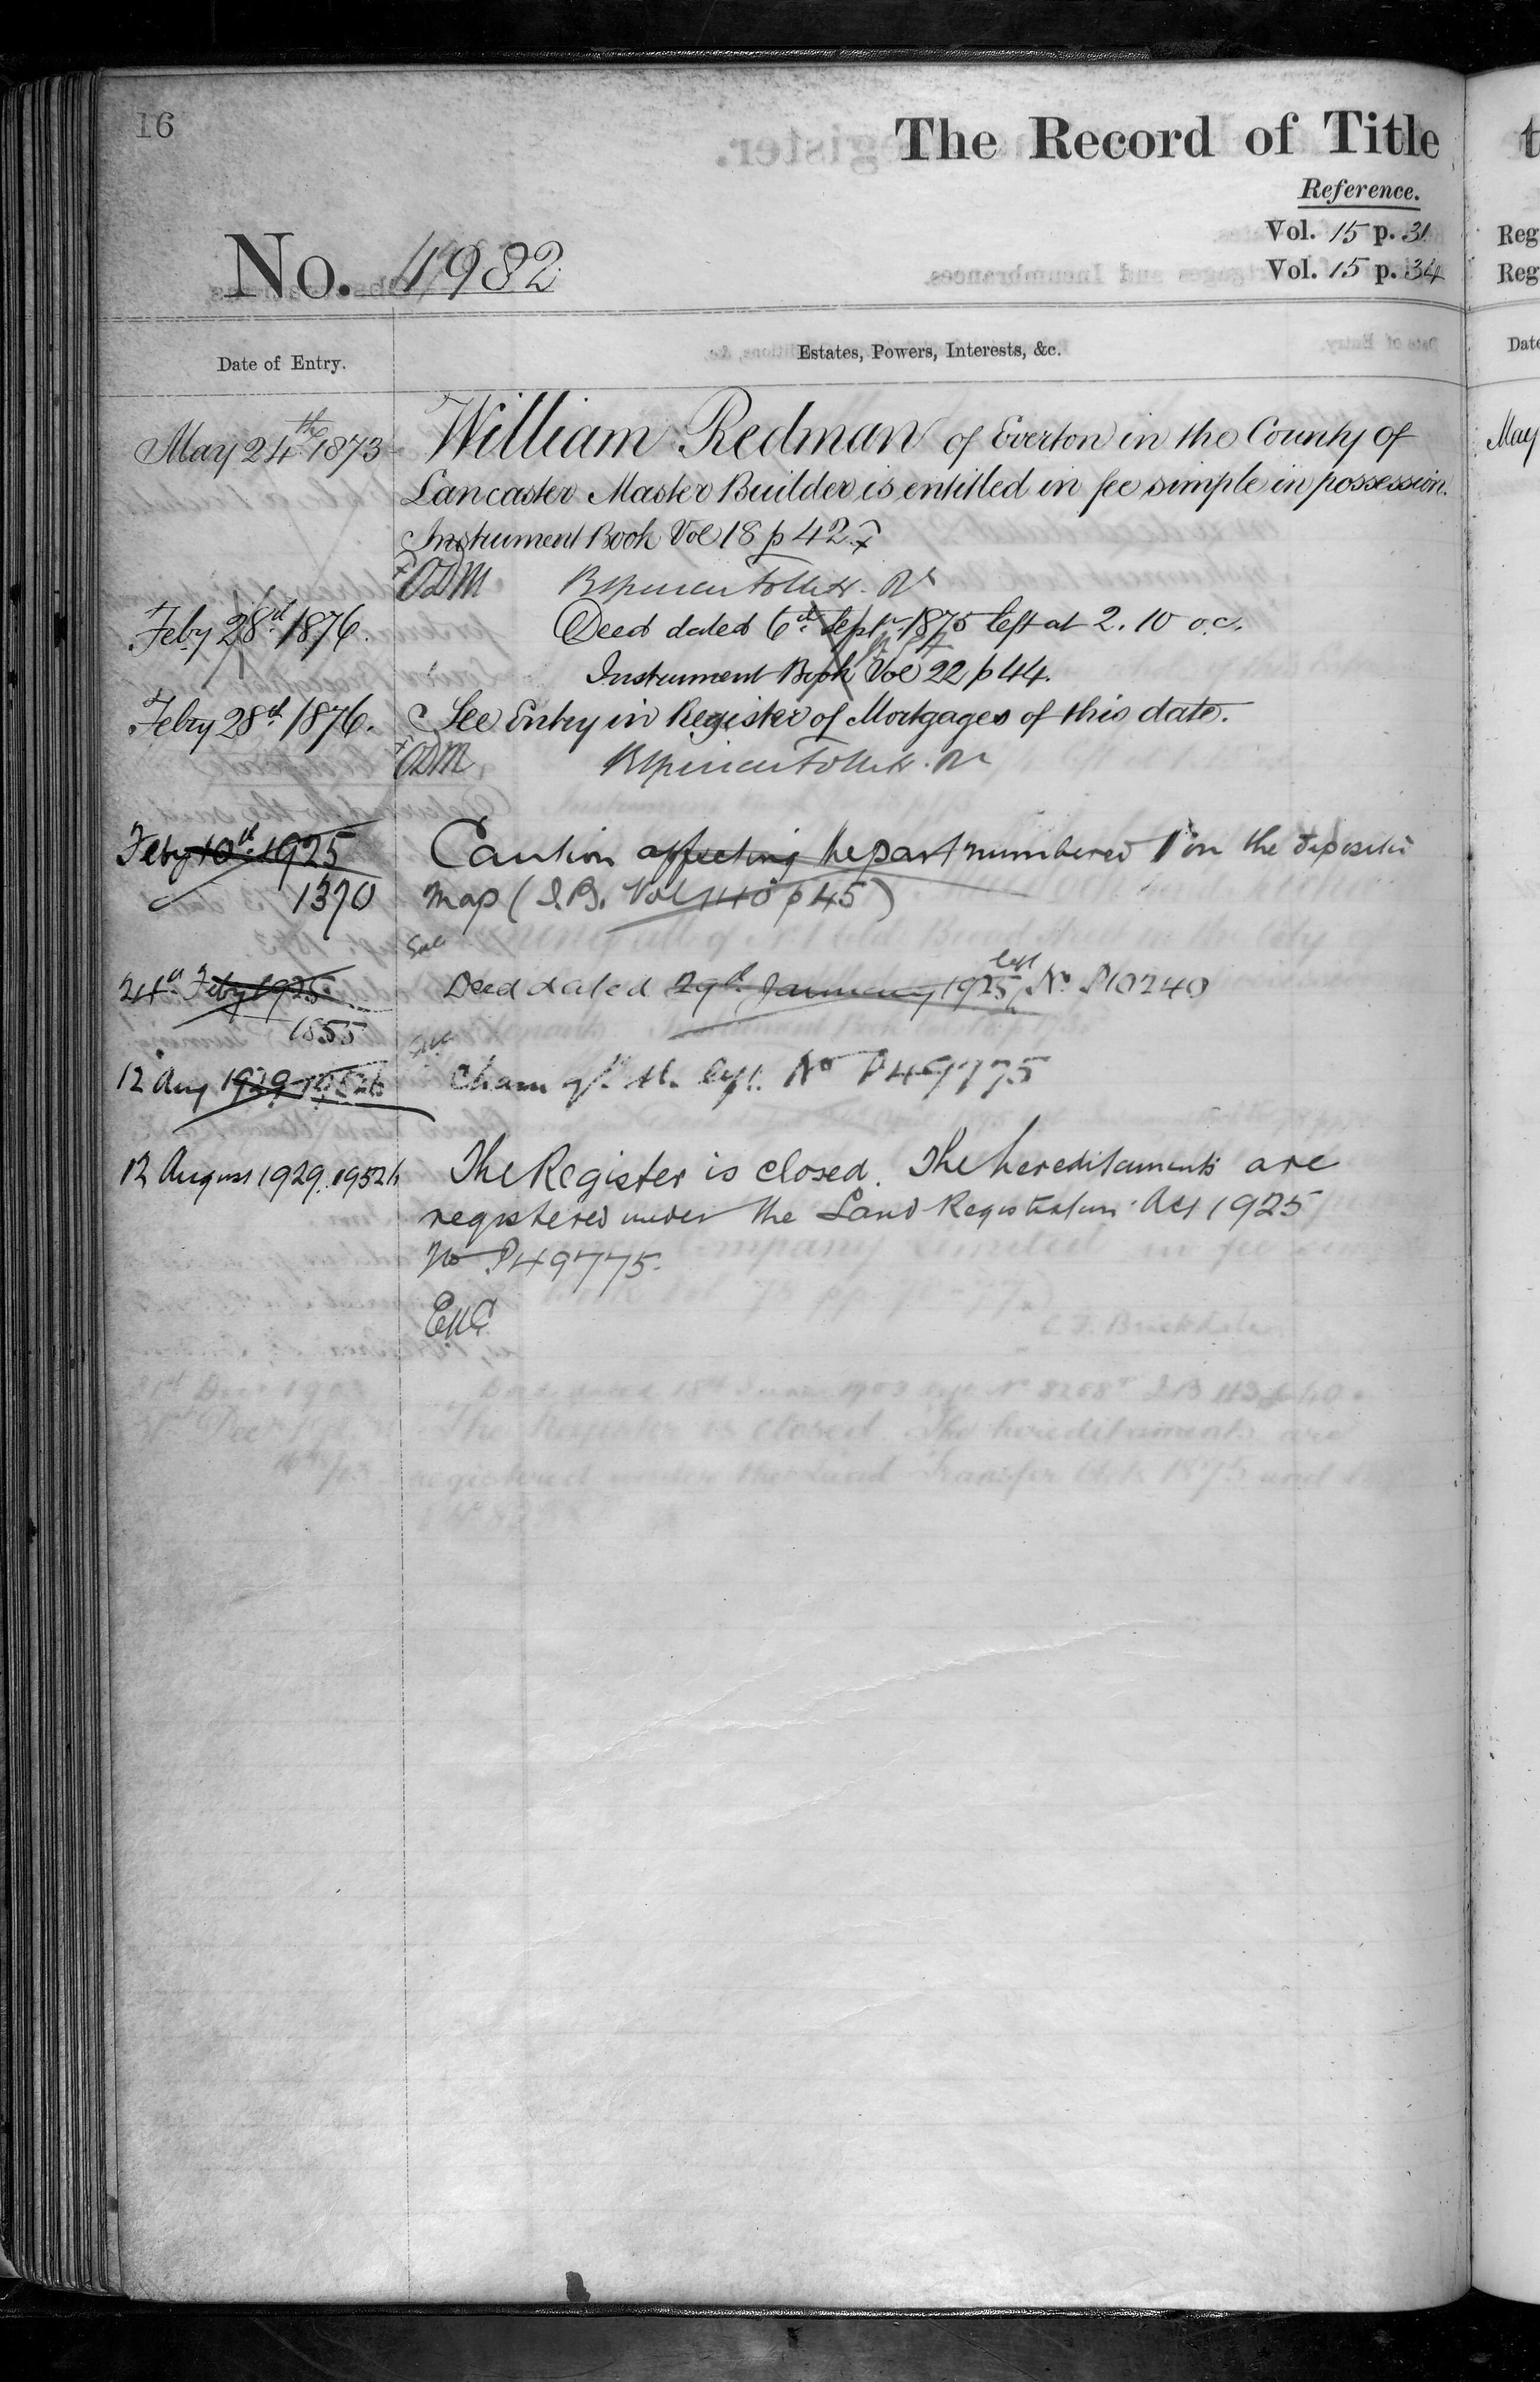 16
The Record of Title
Reference.
Vol. 15 p. 31
No. 4982
Vol. 15 p. 34
Date of Entry.
Estates, Powers, Interests, &c.
May 24th 1873
William Redman of Everton in the County of
Lancaster Master Builder is entitled in fee simple in possession.
Instrument Book Vol 18 p 42
ODM
Feby 28th 1876.
Deed dated 6th Septr 1875 left at 2.10 o.c.
Instrument Book Vol 22 p 44.
Feby 28th 1876.
See Entry in Register of Mortgages of this date.
ODM
Feby 10th 1925
Caution affecting the part numbered 1 on the deposited
1370
map (I.B. Vol 140 p 45)
24th Feby 1925
Deed dated 29th January 1925 left No P10240
1855
12 Aug 1929
left. No P49775
12 August 1929. 1952h
The Register is closed. The hereditaments are
registered under the Land Registration Act 1925
No P49775.
Reg
Reg
Date
May